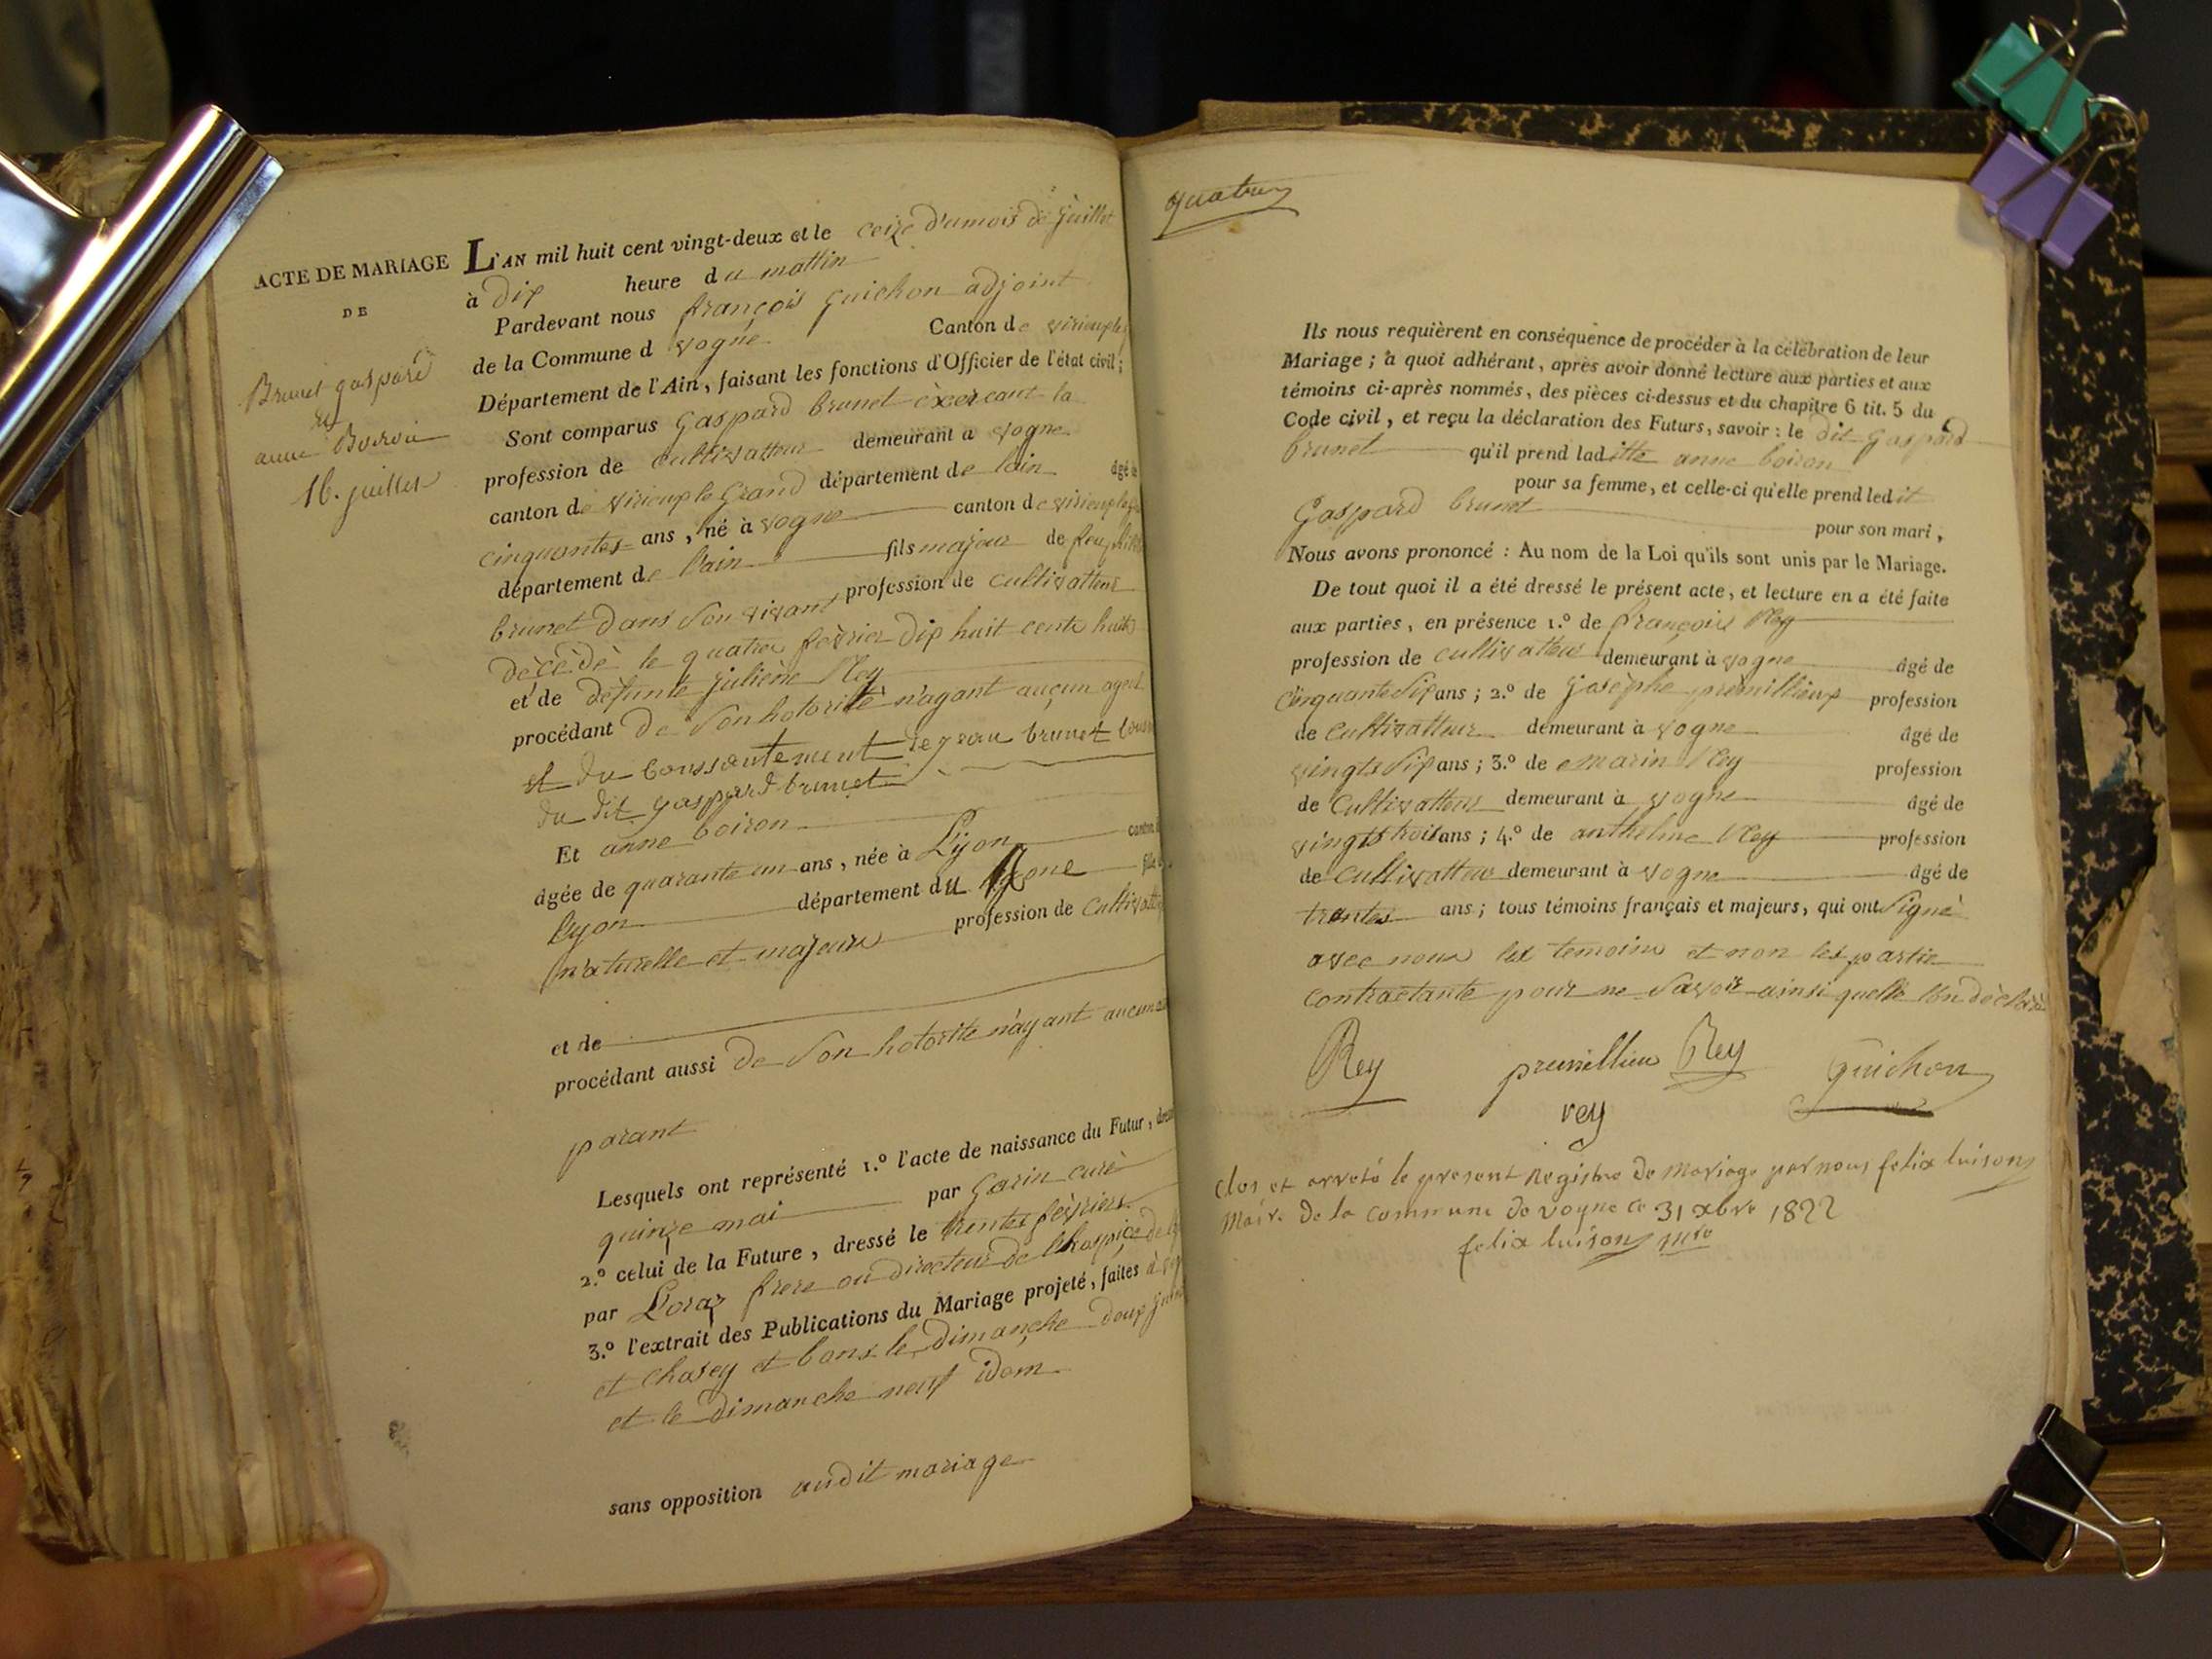 ACTE DE MARIAGE
DE
Brunet gaspard
et
anne Boiron
16. juillet
L'AN mil huit cent vingt-deux et le ceize d'umois de juillet
à dix heure du mattin
Pardevant nous françois guichon adjoint
de la Commune d vogne Canton de virieuple
Département de l'Ain, faisant les fonctions d'Officier de l'état civil;
Sont comparus gaspard brunet èxercant la
profession de cultivatteur demeurant a vogne
canton de virieuple Grand département de lain âgé
cinquantes ans, né à vogne canton de virieuple
département de l'ain fils majeur de feu
brunet dans Son vivant profession de cultivatteur
dècèdè le quatre fèvrier dix huit cents huit
et de defunte juliène Rey
procédant de Son hotorité n'ayant aucun
et du conssentement de jean brunet
du dit gaspard brunet
Et anne boiron
âgée de quarante un ans, née à Lyon canton
Lyon département du Rone
naturelle et majeure profession de Cultivatt
et de
procédant aussi de Son hotorite n'ayant aucun
parant
Lesquels ont représenté 1.º l'acte de naissance du Futur,
quinze mai par Garin curè
2.º celui de la Future, dressé le trentes fèvriers
par Loraz frere ou directeur de l'hospice de
3.º l'extrait des Publications du Mariage projeté, faites à
et Chasey et bons le dimanche deux
et le dimanche neuf idem
sans opposition audit mariage
quatre
Ils nous requièrent en conséquence de procéder à la célébration de leur
Mariage; à quoi adhérant, après avoir donné lecture aux parties et aux
témoins ci-après nommés, des pièces ci-dessus et du chapitre 6 tit. 5 du
Code civil, et reçu la déclaration des Futurs, savoir: le dit Gaspard
brunet qu'il prend laditte anne boiron
pour sa femme, et celle-ci qu'elle prend ledit
Gaspard brunet pour son mari,
Nous avons prononcé: Au nom de la Loi qu'ils sont unis par le Mariage.
De tout quoi il a été dressé le présent acte, et lecture en a été faite
aux parties, en présence 1.º de françois Rey
profession de cultivatteur demeurant à vogne âgé de
cinquante Six ans; 2.º de josèphe premillieux profession
de Cultivatteur demeurant à vogne âgé de
vingts Six ans; 3.º de marin Rey profession
de Cultivatteur demeurant à vogne âgé de
vingts trois ans; 4.º de anthelme Rey profession
de Cultivatteur demeurant à vogne âgé de
trentes ans; tous témoins français et majeurs, qui ont Signè
avec nous les temoins et non les partie
contractante pour ne Savoir ainsi quelle lon dèclarè
Rey premillieu Rey guichon
rey
clos et arreté le present Registre de mariage par nous felix luison
Maire de la commune de vogne ce 31 xbre 1822
felix luison mre